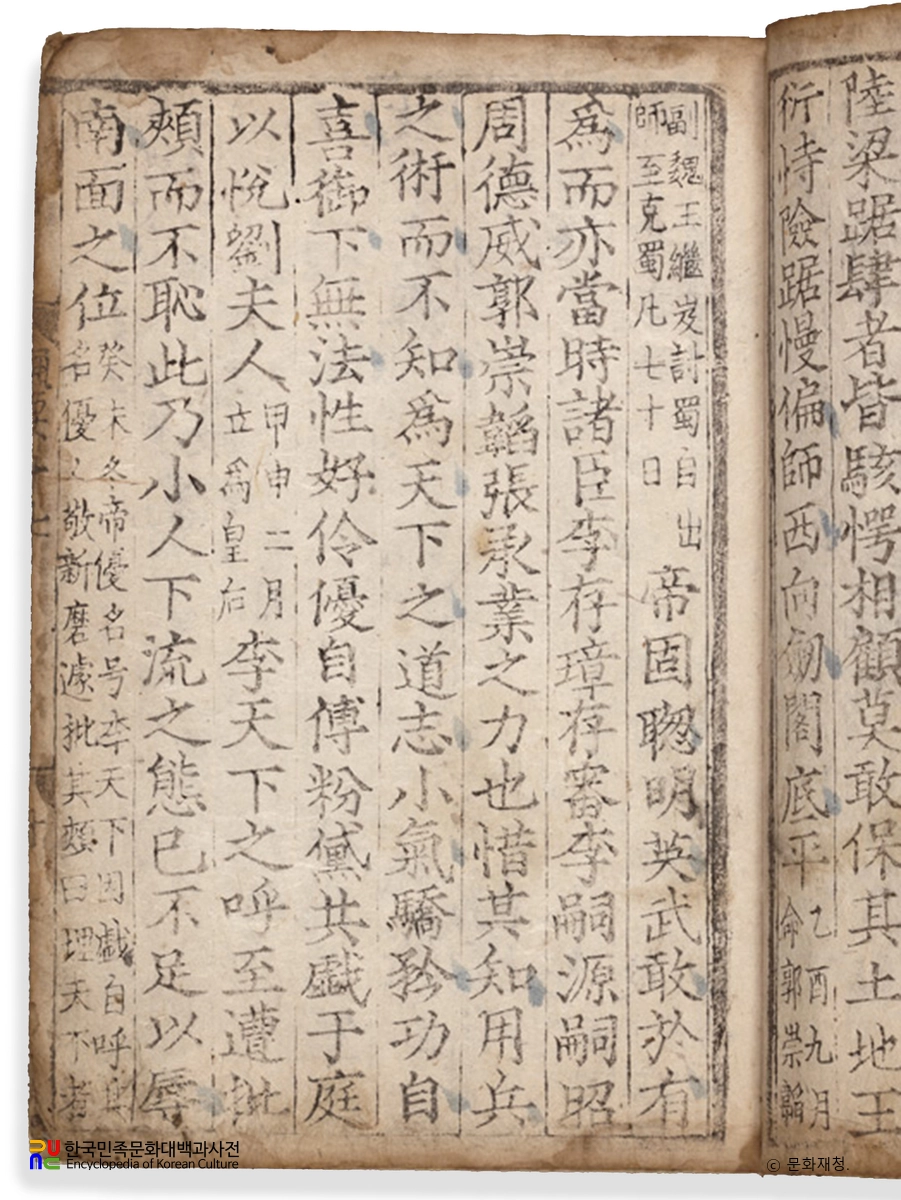 陸梁踞肆者皆駭愕相顧莫敢保其土地王
衍恃險踞慢偏師西向劒閣底平
乙酉九月
命郭崇韜
副魏王繼岌討蜀自出
師至克蜀凡七十日
帝固聦明英武敢於有
爲而亦當時諸臣李存璋存審李嗣源嗣昭
周德威郭崇韜張承業之力也惜其知用兵
之術而不知爲天下之道志小氣驕矜功自
喜御下無法性好伶優自傅粉黛共戲于庭
以悅劉夫人
甲申二月
立爲皇后
李天下之呼至遭批
頰而不恥此乃小人下流之態已不足以辱
南面之位
癸未冬帝優名号李天下因戲自呼
名優人敬新磨遽批其頰曰理天下者
한국민족문화대백과사전
Encyclopedia of Korean Culture
© 문화재청.